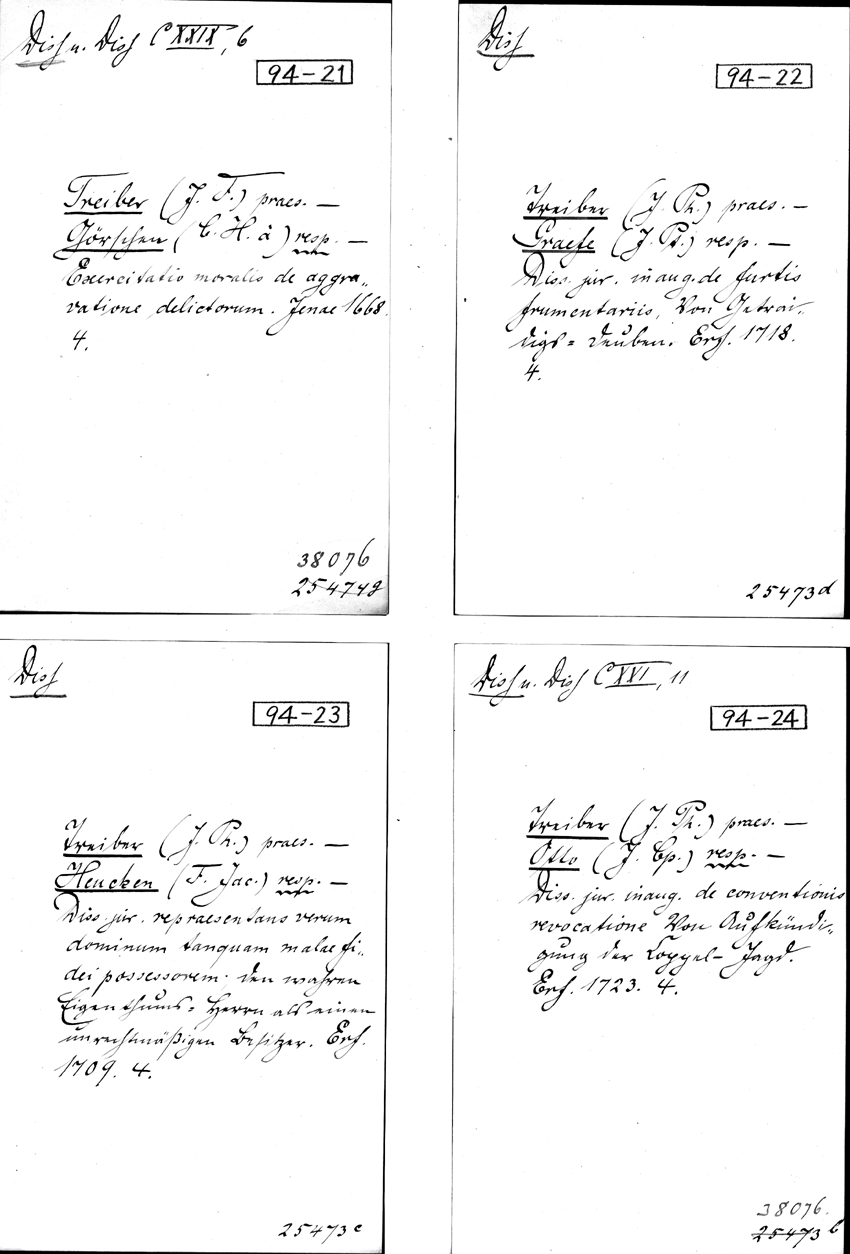 Diss u. Diss C XXIX, 6
94-21
Treiber (J. F.) praes. —
Görschen (C. H. à) resp. —
Exercitatio moralis de aggra„
vatione delictorum. Jenae 1668.
4.
38076
25474g
Diss
94-22
Treiber (J. Ph.) praes. —
Graefe (J. Pt.) resp. —
Diss. jur. inaug. de furtis
frumentariis, Von Getrai„
digs = deuben. Erf. 1718.
4.
25473d
Diss
94-23
Treiber (J. Ph.) praes. —
Heucken (F. Jac.) resp. —
Diss. jur. repraesentans verum
dominum tanquam malae fi„
dei possessorem; den wahren
Eigenthums = Herrn als einen
unrechtmäßigen Besitzer. Erf.
1709. 4.
25473c
Diss u. Diss C XXI, 11
94-24
Treiber (J. Ph.) praes. —
Otto (J. Cp.) resp. —
Diss. jur. inaug. de conventionis
revocatione Von Aufkündi„
gung der Coppel- Jagd.
Erf. 1723. 4.
38076.
25473b